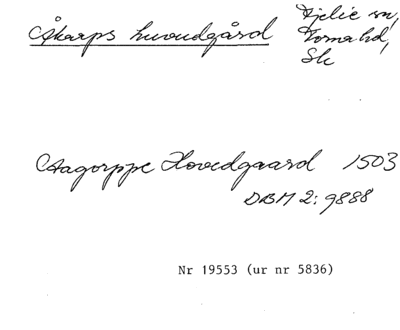 Åkarps huvudgård
Fjelie sn,
Torna hd,
Sk
Aagorppe Hovedgaard 1503
DBM 2: 9888
Nr 19553 (ur nr 5836)